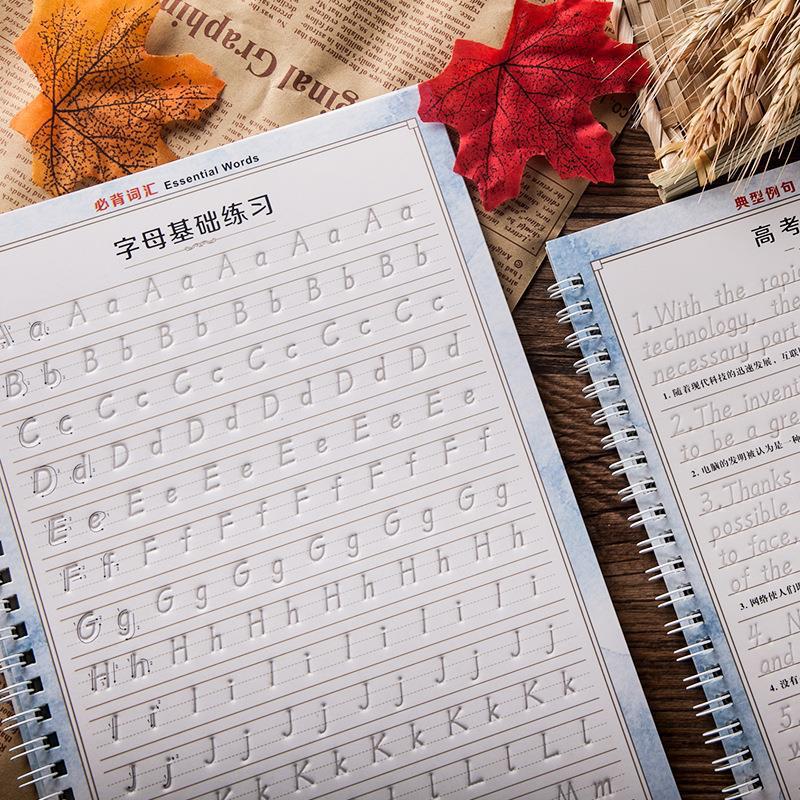 ginal Graphin
必背词汇 Essential Words
字母基础练习
A a A a A a A a A a A a
B b B b B b B b B b B b
C c C c C c C c C c C c
D d D d D d D d D d D d
E e E e E e E e E e E e
F f F f F f F f F f F f
G g G g G g G g G g G g
H h H h H h H h H h H h
I i I i I i I i I i I i
J j J j J j J j J j J j
K k K k K k K k
L l L l
M m
典型例句
高考
1.With the rapi
technology, the
necessary part
1. 随着现代科技的迅速发展，互联
2.The invent
to be a grea
2. 电脑的发明被认为是一种
3.Thanks
possible
to face.
of the
3. 网络使人们
4. N
and
4. 没有
5.